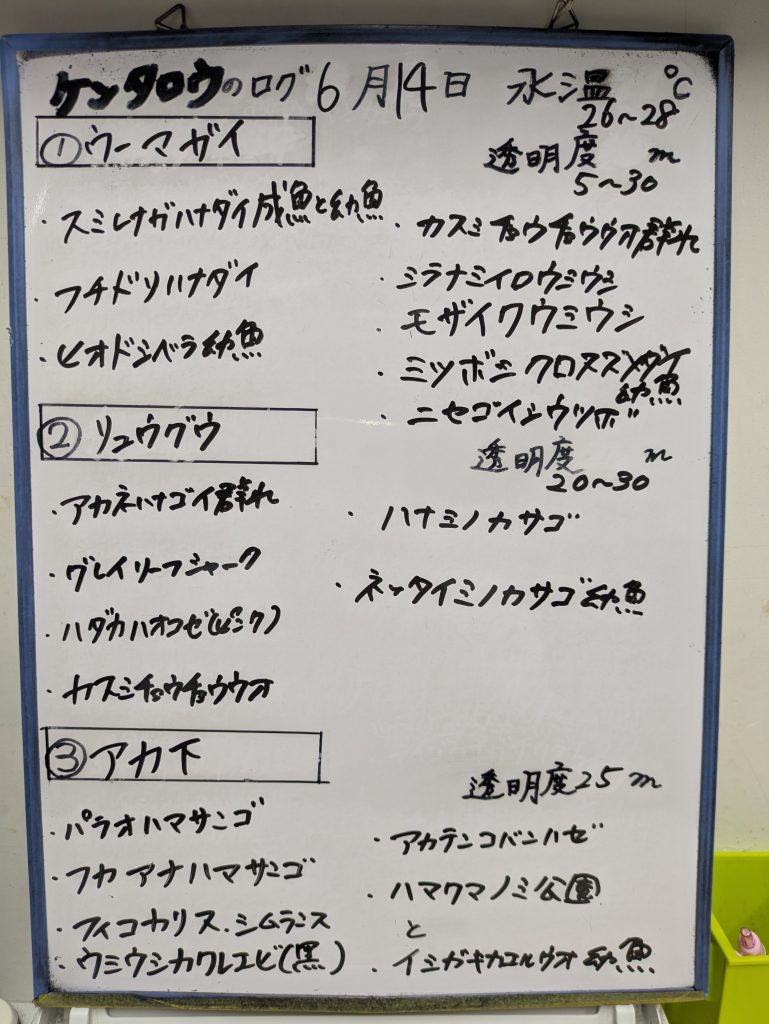 ケンタロウのログ 6月14日 水温 ℃
26~28
①ウーマガイ
透明度 m
5~30
・スミレナガハナダイ成魚と幼魚
・フチドリハナダイ
・ヒオドシベラ幼魚
・カスミチョウチョウウオ群れ
・シラナミイロウミウシ
・モザイクウミウシ
・ミツボシクロスズメダイ
幼魚
・ニセゴイシウツボ
②リュウグウ
透明度 m
20~30
・アカネハナゴイ群れ
・グレイリーフシャーク
・ハダカハオコゼ(ピンク)
・カスミチョウチョウウオ
・ハナミノカサゴ
・ネッタイミノカサゴ幼魚
③アカ下
透明度25m
・パラオハマサンゴ
・フカアナハマサンゴ
・フィコカリス.シムランス
・ウミウシカクレエビ(黒)
・アカテンコバンハゼ
・ハマクマノミ公園
と
・イシガキカエルウオ幼魚